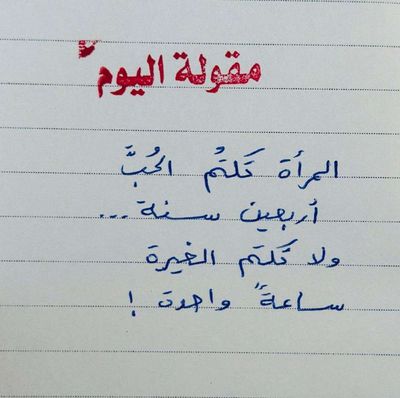 مقولة اليوم
المرأة تَكتُم الحُبَّ
أربعين سنة...
ولا تَكتم الغيرة
ساعةً واحدة !